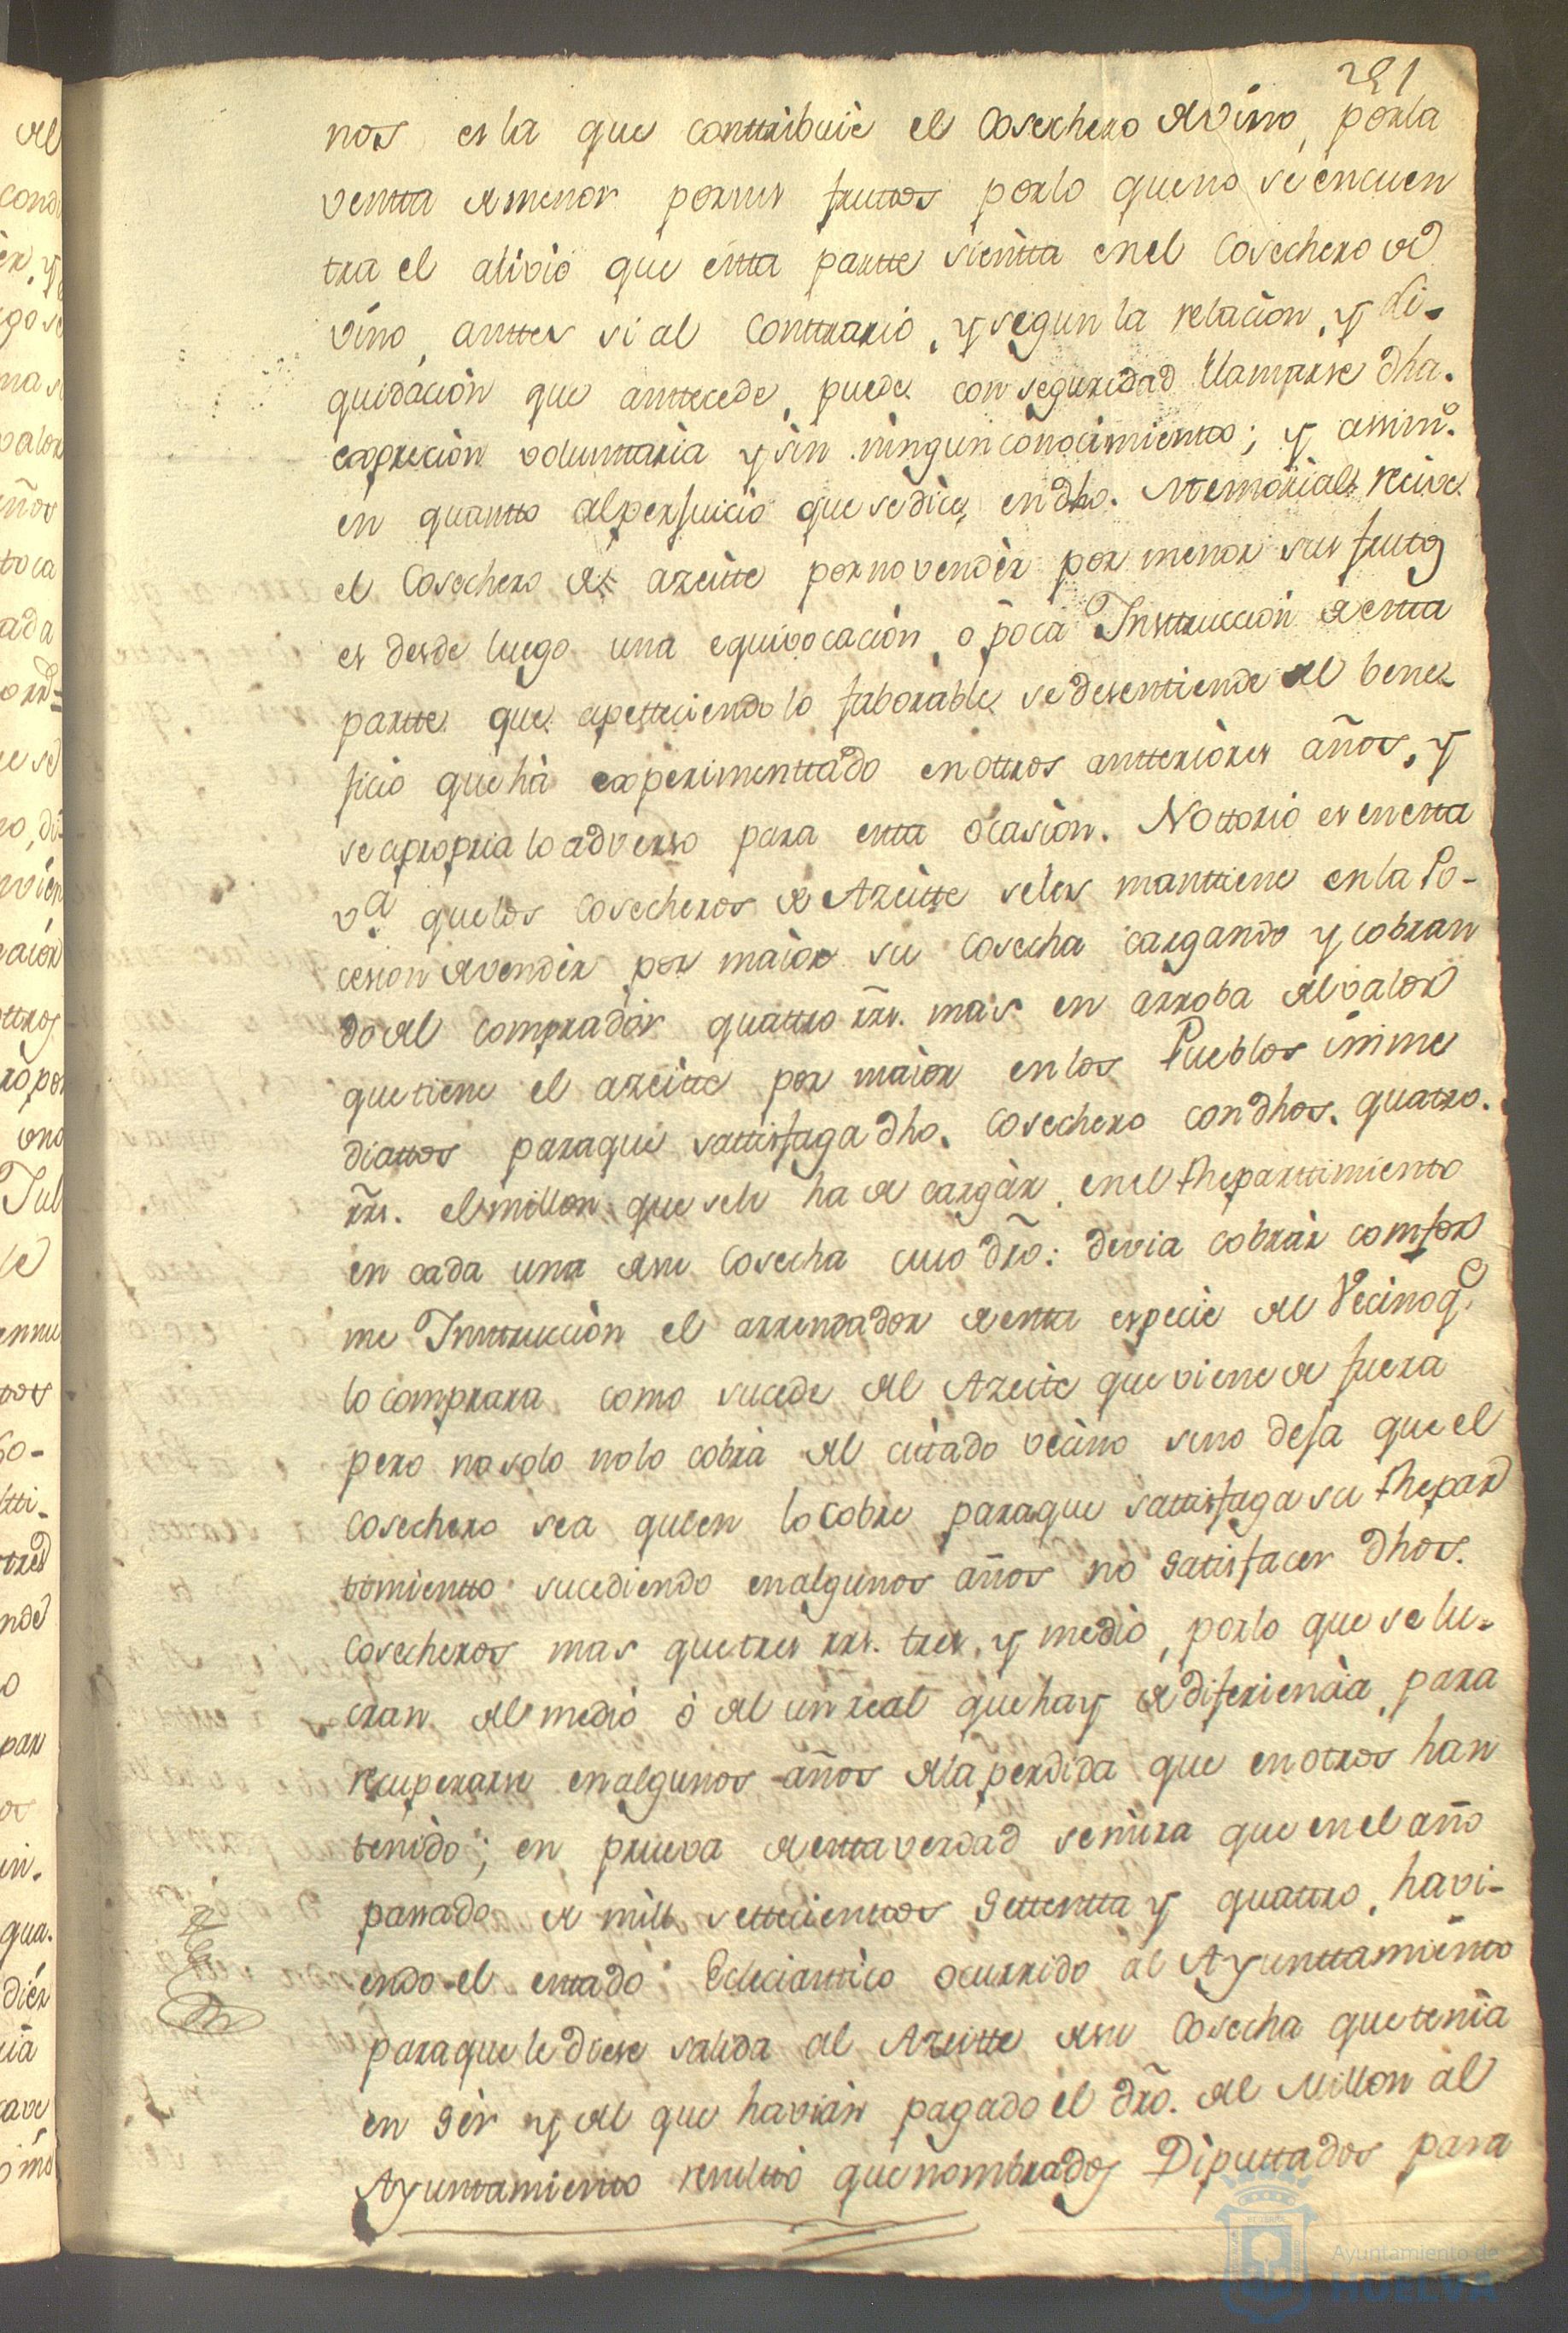 291
nos es la que conttribuie el Cosechero de vino, por la
ventta de menor por sus fruttos por lo que no se encuen
tra el alivio que esta partte sientta en el Cosechero de
vino, anttes si al Conttrario, y segun la relacion, y li-
quidacion que anttecede, puede con seguridad llamarse dha.
expresion volunttaria y sin ningun conocimientto; y assimo.
en quantto al perjuicio que se dice, en dho. Memorial, recive
el Cosechero de azeitte por no vender por menor sus frutos
es desde luego una equivocacion, o poca Insttruccion de esta
partte que apetteciendo lo faborable se desentiende del bene-
ficio que ha experimenttado en ottros antteriores años, y
se apropria lo adverso para esta ocasion. Nottorio es en esta
va. que los Cosecheros de Azeitte se les manttiene en la Po-
cesion de vender por maior su Cosecha cargando y cobran
do del comprador quattro rrs. mas en arroba del valor
que tiene el azeitte por maior en los Pueblos inme
diattos para que sattisfaga dho. Cosechero con dhos. quatro.
rrs. el millon que se le ha de cargar en el Repartimiento
en cada una de su Cosecha cuio dro: devia cobrar comfor
me Insttruccion el arrendador de esta especie del Vecino qe.
lo comprara como sucede del Azeite que viene de fuera
pero no solo no lo cobra del cittado vecino sino deja que el
Cosechero sea quien lo Cobre para que sattisfaga su Repar
tomientto sucediendo en algunos años no satisfacer dhos.
Cosecheros mas que tres rrs. tres, y medio, por lo que se lu-
cran del medio ó del un real que hay de diferiencia para
recuperarse en algunos años de la perdida que en otros han
tenido; en prueva de esta verdad se mira que en el año
passado de mill settecienttos settentta y quattro, havi-
endo el estado Eclesiasttico ocurrido al Ayunttamiento
para que le diese salida al Azeitte de su Cosecha que tenia
en ser y del que havian pagado el dro. del Millon al
Ayuntamiento resulttó que nombrados Diputtados para
Ayuntamiento de
HUELVA